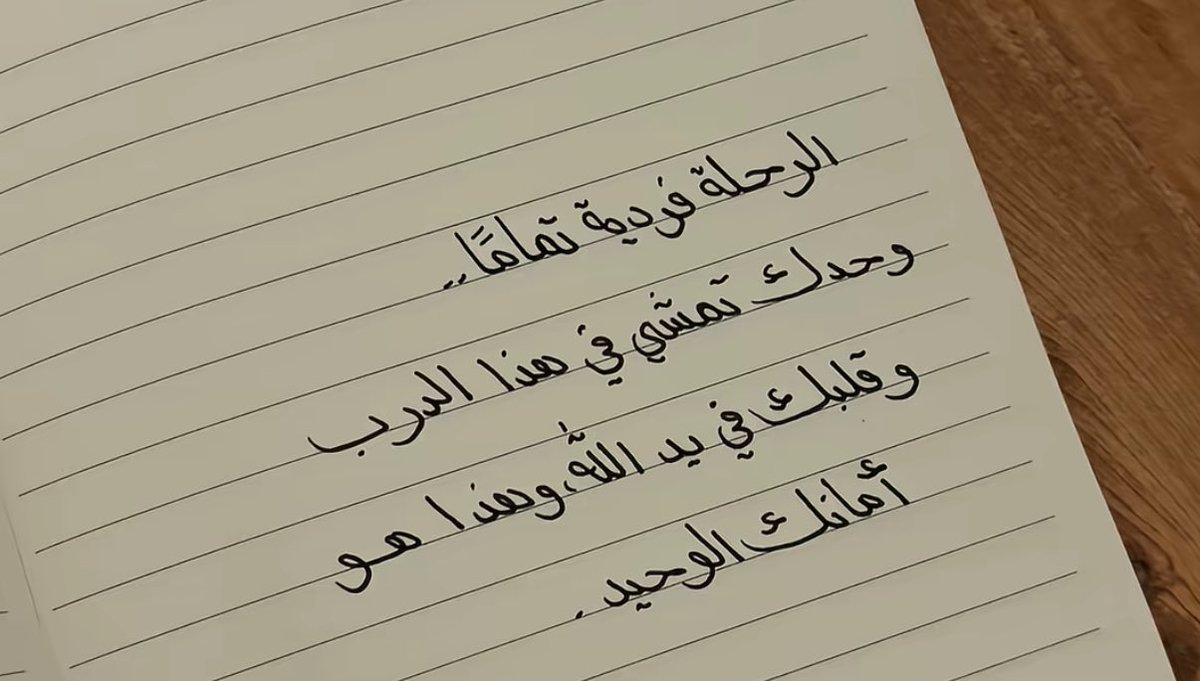 الرحلة فردية تمامًا..
وحدك تمشي في هذا الدرب
وقلبك في يد الله، وهذا هو
أمانك الوحيد.